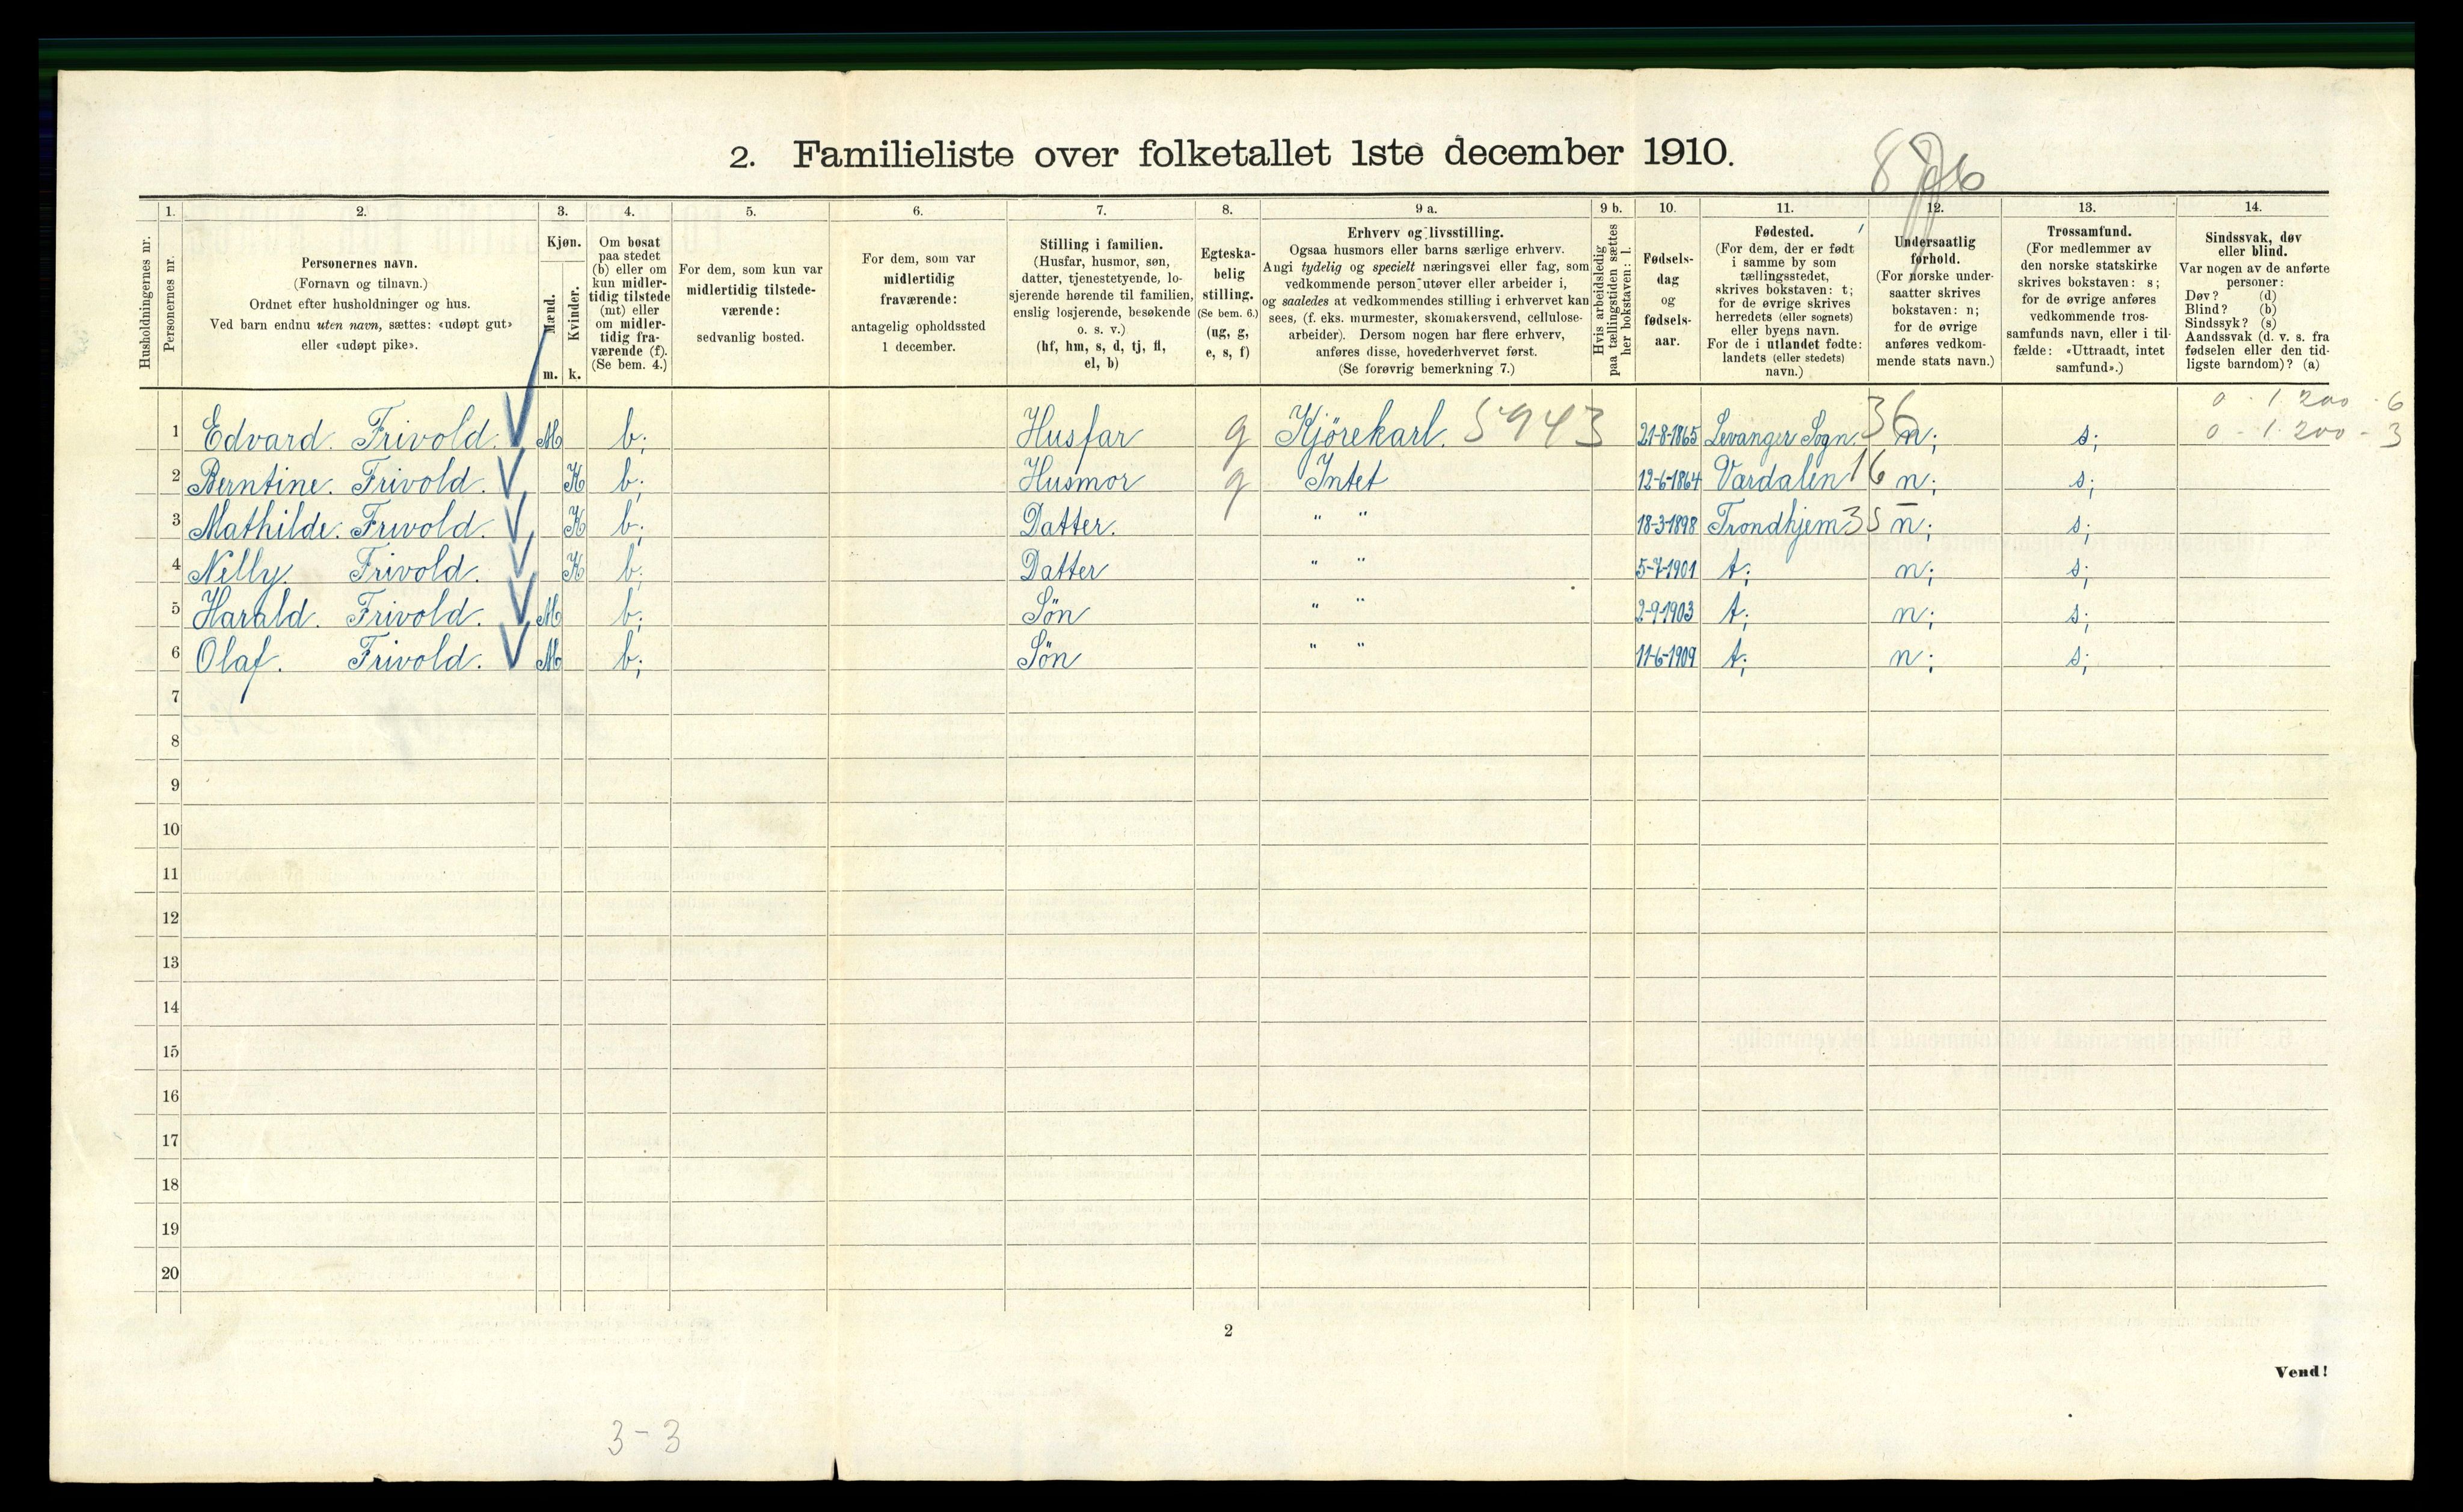 2. Familieliste over folketallet 1ste december 1910.
Husholdningernes nr.
1.
Personernes nr.
2.
Personernes navn.
(Fornavn og tilnavn.)
Ordnet efter husholdninger og hus.
Ved barn endnu uten navn, sættes: «udøpt gut»
eller «udøpt pike».
3.
Kjøn.
Mænd.
Kvinder.
m. k.
4.
Om bosat
paa stedet
(b) eller om
kun midler-
tidig tilstede
(mt) eller
om midler-
tidig fra-
værende (f).
(Se bem. 4.)
5.
For dem, som kun var
midlertidig tilstede-
værende:
sedvanlig bosted.
6.
For dem, som var
midlertidig
fraværende:
antagelig opholdssted
1 december.
7.
Stilling i familien.
(Husfar, husmor, søn,
datter, tjenestetyende, lo-
sjerende hørende til familien,
enslig losjerende, besøkende
o. s. v.)
(hf, hm, s, d, tj, fl,
el, b)
8.
Egteska-
belig
stilling.
(Se bem. 6.)
(ug, g,
e, s, f)
9 a.
Erhverv og livsstilling.
Ogsaa husmors eller barns særlige erhverv.
Angi tydelig og specielt næringsvei eller fag, som
vedkommende person utøver eller arbeider i,
og saaledes at vedkommendes stilling i erhvervet kan
sees, (f. eks. murmester, skomakersvend, cellulose-
arbeider). Dersom nogen har flere erhverv,
anføres disse, hovederhvervet først.
(Se forøvrig bemerkning 7.)
9 b.
Hvis arbeidsledig
paa tællingstiden sættes
her bokstaven: l.
10.
Fødsels-
dag
og
fødsels-
aar.
11.
Fødested.
(For dem, der er født
i samme by som
tællingsstedet,
skrives bokstaven: t;
for de øvrige skrives
herredets (eller sognets)
eller byens navn.
For de i utlandet fødte:
landets (eller stedets)
navn.)
12.
Undersaatlig
forhold.
(For norske under-
saatter skrives
bokstaven: n;
for de øvrige
anføres vedkom-
mende stats navn.)
13.
Trossamfund.
(For medlemmer av
den norske statskirke
skrives bokstaven: s;
for de øvrige anføres
vedkommende tros-
samfunds navn, eller i til-
fælde: «Uttraadt, intet
samfund».)
14.
Sindssvak, døv
eller blind.
Var nogen av de anførte
personer:
Døv? (d)
Blind? (b)
Sindssyk? (s)
Aandssvak (d. v. s. fra
fødselen eller den tid-
ligste barndom)? (a)
0 - 1.200 - 6
0 - 1.200 - 3
1 Edvard. Frivold. M b; Husfar g Kjörekarl. 5943 21-8-1865 Levanger Sogn. 36 n; s;
2 Berntine. Frivold. K b; Husmor g Intet 12-6-1864 Værdalen 16 n; s;
3 Mathilde. Frivold. K b; Datter. " " 18-3-1898 Trondhjem 35 n; s;
4 Nelly. Frivold. K b; Datter " " 5-7-1901 t; n; s;
5 Harald. Frivold. M b; Sön " " 2-9-1903 t; n; s;
6 Olaf. Frivold. M b; Sön " " 11-6-1909 t; n; s;
7
8
9
10
11
12
13
14
15
16
17
18
19
20
2
Vend!
3-3